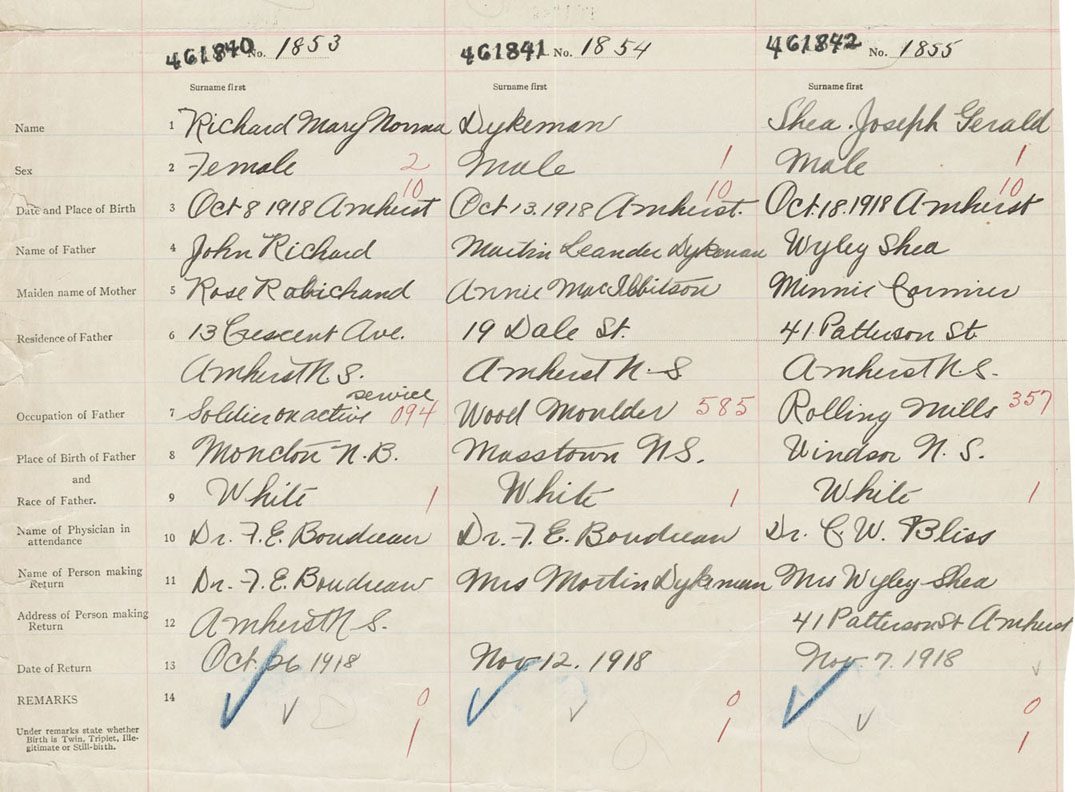 461840 No. 1853 461841 No. 1854 461842 No. 1855
Surname first Surname first Surname first
Name 1 Richard Mary Norma Dykeman Shea. Joseph Gerald
Sex 2 Female 2 Male 1 Male 1
10 10 10
Date and Place of Birth 3 Oct 8 1918 Amherst Oct 13. 1918 Amherst. Oct. 18. 1918 Amherst
Name of Father 4 John Richard Martin Leander Dykeman Wyley Shea
Maiden name of Mother 5 Rose Robichaud Annie MacIbbitson Minnie Cormier
Residence of Father 6 13 Crescent Ave. 19 Dale St. 41 Patterson St
Amherst N S. Amherst N-S Amherst N.S.
service
Occupation of Father 7 Soldier on active 094 Wood Moulder 585 Rolling Mills 357
Place of Birth of Father 8 Moncton N.B. Masstown N.S. Windsor N. S.
and
Race of Father. 9 White 1 White 1 White 1
Name of Physician in
attendance 10 Dr. F. E. Boudreau Dr. F. E. Boudreau Dr. C. W. Bliss
Name of Person making
Return 11 Dr. F. E. Boudreau Mrs Martin Dykeman Mrs Wyley Shea
Address of Person making
Return 12 Amherst N S. 41 Patterson St Amherst
Date of Return 13 Oct. 26 1918 Nov 12. 1918 Nov 7. 1918
REMARKS 14 0 0 0
Under remarks state whether
Birth is Twin, Triplet, Ille-
gitimate or Still-birth. 1 1 1